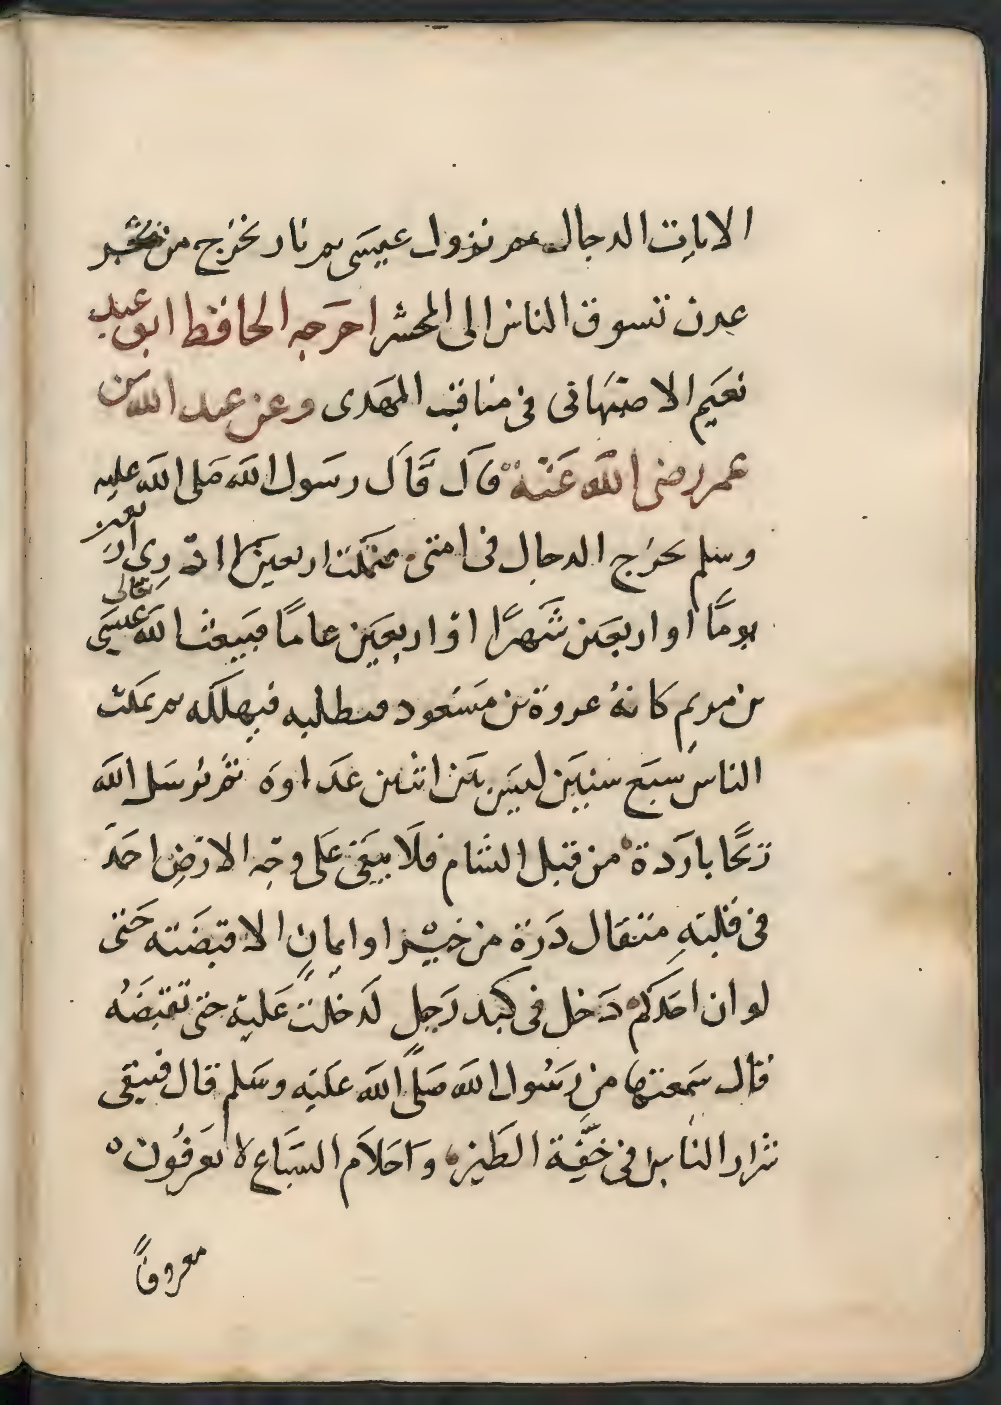 الايات الدجال ثم نزول عيسى ثم نار تخرج من
عدن تسوق الناس الى المحشر اخرجه الحافظ ابو عبد
نعيم الاصبهاني في مناقب المهدى وعن عبد الله بن
عمر رضى الله عنه قال قال رسول الله صلى الله عليه
وسلم يخرج الدجال فى امتى فيمكث اربعين لا ادرى اربعين
يومًا او اربعين شهرًا او اربعين عامًا فيبعث الله تعالى عيسى
بن مريم كانه عروة بن مسعود فيطلبه فيهلكه ثم يمكث
الناس سبع سنين ليس بين اثنين عداوة ثم يرسل الله
ريحًا باردة من قبل الشام فلا يبقى على وجه الارض احد
فى قلبه مثقال ذرة من خير او ايمان الا قبضته حتى
لو ان احدكم دخل فى كبد رجل لدخلت عليه حتى تقبضه
قال سمعتها من رسول الله صلى الله عليه وسلم قال فيبقى
شرار الناس فى خفة الطير واحلام السباع لا يعرفون
معروفًا